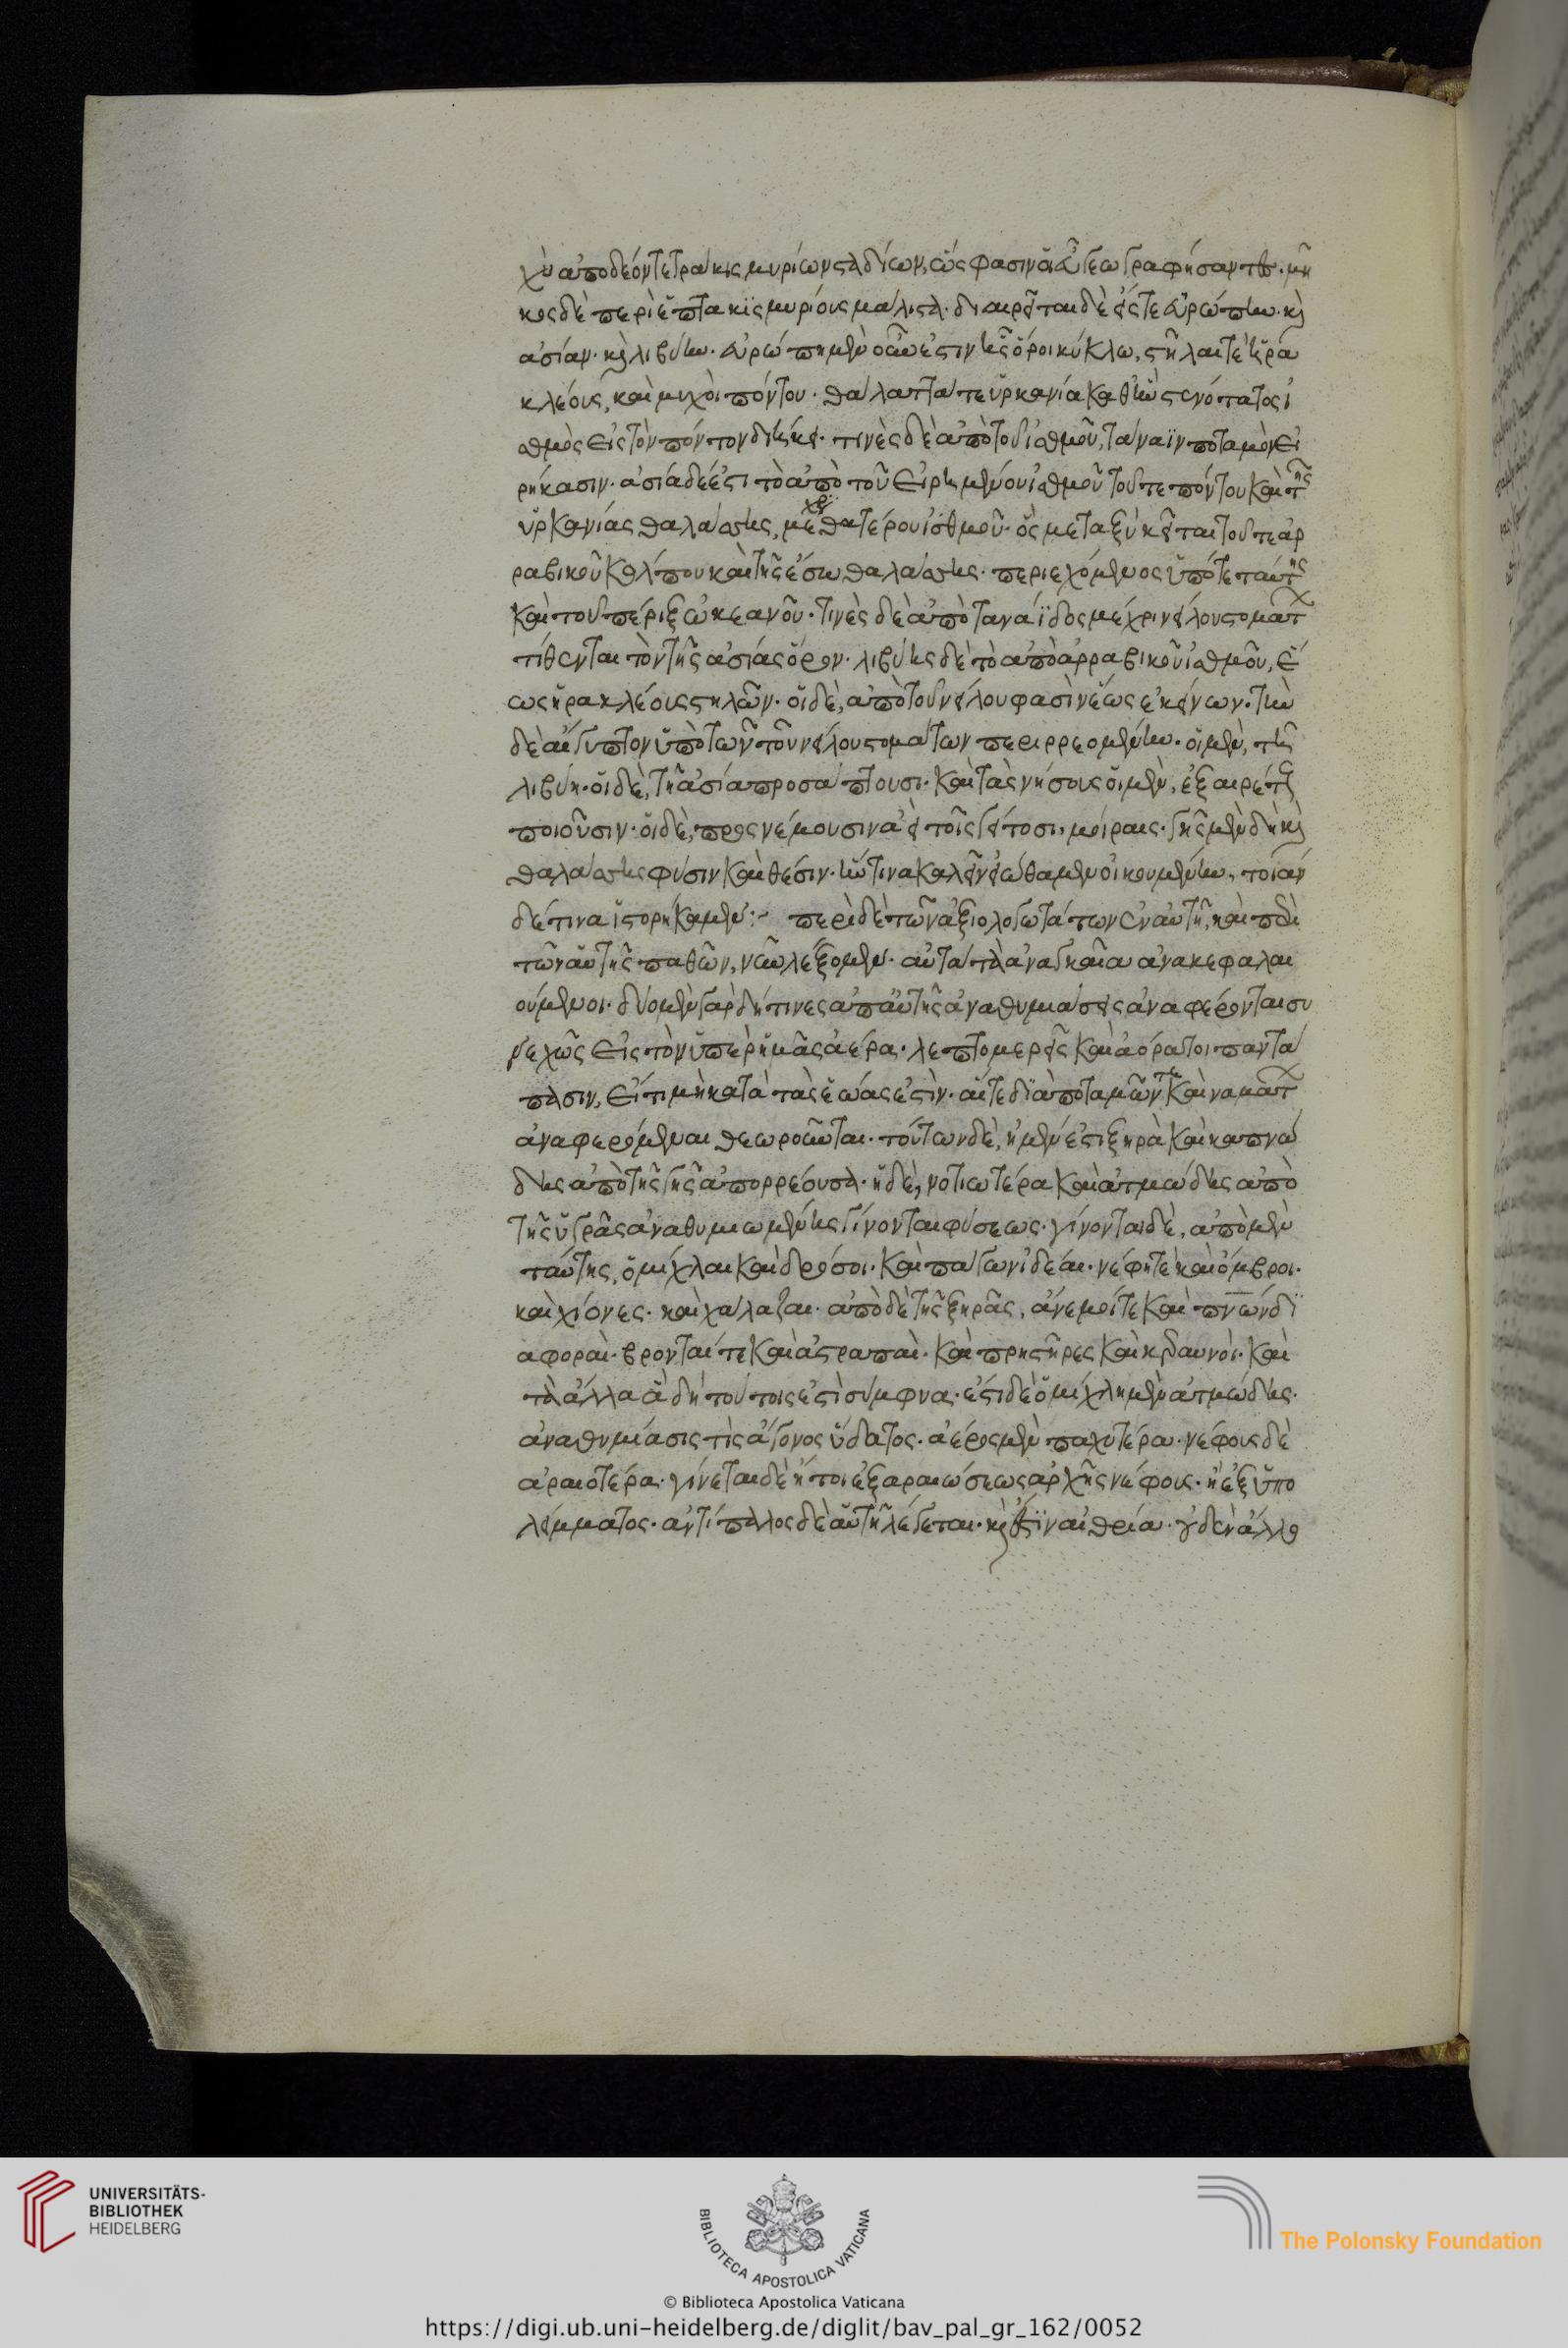 χὺ ἀποδέον τετρακισμυρίων σταδίων, ὥς φασιν οἱ εὖ γεωγραφήσαντες· μῆ
κος δὲ περὶ ἑπτακισμυρίους μάλιστα· διαιρεῖται δὲ εἴς τε εὐρώπην· καὶ
ἀσίαν· καὶ λιβύην· εὐρώπη μὲν οὖν ἐστιν ἧς ὅροι κύκλω, στῆλαί τε ἡρα
κλέους, καὶ μυχοὶ πόντου· θάλαττά τε ὑρκανία καθ' ἣν στενότατος ἰ
σθμὸς εἰς τὸν πόντον διήκει· τινὲς δὲ ἀπὸ τοῦ ἰσθμοῦ, τάναϊν ποταμὸν εἰ
ρήκασιν· ἀσία δέ ἐστι τὸ ἀπὸ τοῦ εἰρημένου ἰσθμοῦ τοῦ τε πόντου καὶ τῆς
ὑρκανίας θαλάσσης, μέχρι θατέρου ἰσθμοῦ· ὃς μεταξὺ κεῖται τοῦ τε ἀρ
ραβικοῦ κόλπου καὶ τῆς ἔσω θαλάσσης· περιεχόμενος ὑπό τε ταύτης
καὶ τοῦ πέριξ ὠκεανοῦ· τινὲς δὲ ἀπὸ τανάϊδος μέχρι νείλου στομάτων
τίθενται τὸν τῆς ἀσίας ὅρον· λιβύης δὲ τὸ ἀπὸ ἀρραβικοῦ ἰσθμοῦ, ἕ
ως ἡρακλέους στηλῶν· οἱ δὲ, ἀπὸ τοῦ νείλου φασὶν ἕως ἐκείνων· τὴν
δὲ αἴγυπτον ὑπὸ τῶν τοῦ νείλου στομάτων περιρρεομένην· οἱ μὲν, τῆ
λιβύη· οἱ δὲ, τῆ ἀσία προσάπτουσι· καὶ τὰς νήσους οἱ μὲν, ἐξαιρέτους
ποιοῦσιν· οἱ δὲ, προσνέμουσιν ἀεὶ τοῖς γείτοσι μοίραις· γῆς μὲν δὴ καὶ
θαλάσσης φύσιν καὶ θέσιν· ἥντινα καλεῖν εἰώθαμεν οἰκουμένην, τοιάν
δέ τινα ἱστορήκαμεν:– περὶ δὲ τῶν ἀξιολογωτάτων ἐν αὐτῆ, καὶ περὶ
τῶν αὐτῆς παθῶν, νῦν λέξομεν· αὐτὰ τὰ ἀναγκαῖα ἀνακεφαλαι
ούμενοι· δύο μὲν γὰρ δή τινες ἀπ' αὐτῆς ἀναθυμιάσεις ἀναφέρονται συ
νεχῶς εἰς τὸν ὑπὲρ ἡμᾶς ἀέρα· λεπτομερεῖς καὶ ἀόρατοι παντά
πασιν, εἴ τι μὴ κατὰ τὰς ἑώας ἐστίν· αἵ τε διὰ ποταμῶν τε καὶ ναμάτων
ἀναφερόμεναι θεωροῦνται· τούτων δὲ, ἡ μέν ἐστι ξηρὰ καὶ καπνώ
δης ἀπὸ τῆς γῆς ἀπορρέουσα· ἡ δὲ, νοτιωτέρα καὶ ἀτμώδης ἀπὸ
τῆς ὑγρᾶς ἀναθυμιωμένης γίνονται φύσεως· γίνονται δὲ, ἀπὸ μὲν
ταύτης, ὁμίχλαι καὶ δρόσοι· καὶ πάγων ἰδέαι· νέφη τε καὶ ὄμβροι·
καὶ χιόνες· καὶ χάλαζαι· ἀπὸ δὲ τῆς ξηρᾶς, ἄνεμοί τε καὶ πνων δι
αφοραὶ· βρονταί τε καὶ ἀστραπαὶ· καὶ πρηστῆρες καὶ κεραυνοὶ· καὶ
τὰ ἄλλα ἃ δὴ τούτοις ἐστὶ σύμφυα· ἔστι δὲ ὁμίχλη μὲν ἀτμώδης
ἀναθυμίασις τὶς ἄγονος ὕδατος· ἀέρος μὲν παχυτέρα· νέφους δὲ
ἀραιοτέρα· γίνεται δὲ ἤτοι ἐξ ἀραιώσεως ἀρχῆς νέφους· ἢ ἐξ ὑπο
λείμματος· ἀντίπαλος δὲ αὐτῆ λέγεται· καί ἐστιν αἰθρία· οὐδὲν ἄλλο
UNIVERSITÄTS-
BIBLIOTHEK
HEIDELBERG
BIBLIOTECA APOSTOLICA VATICANA
The Polonsky Foundation
© Biblioteca Apostolica Vaticana
https://digi.ub.uni-heidelberg.de/diglit/bav_pal_gr_162/0052